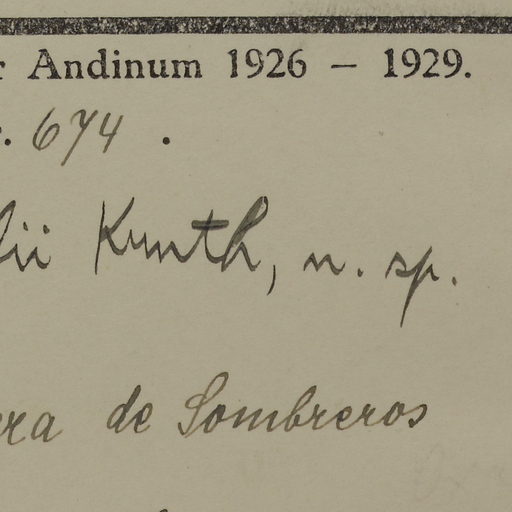 r Andinum 1926 – 1929.
r. 674 .
lii Knuth, n. sp.
rra de Sombreros